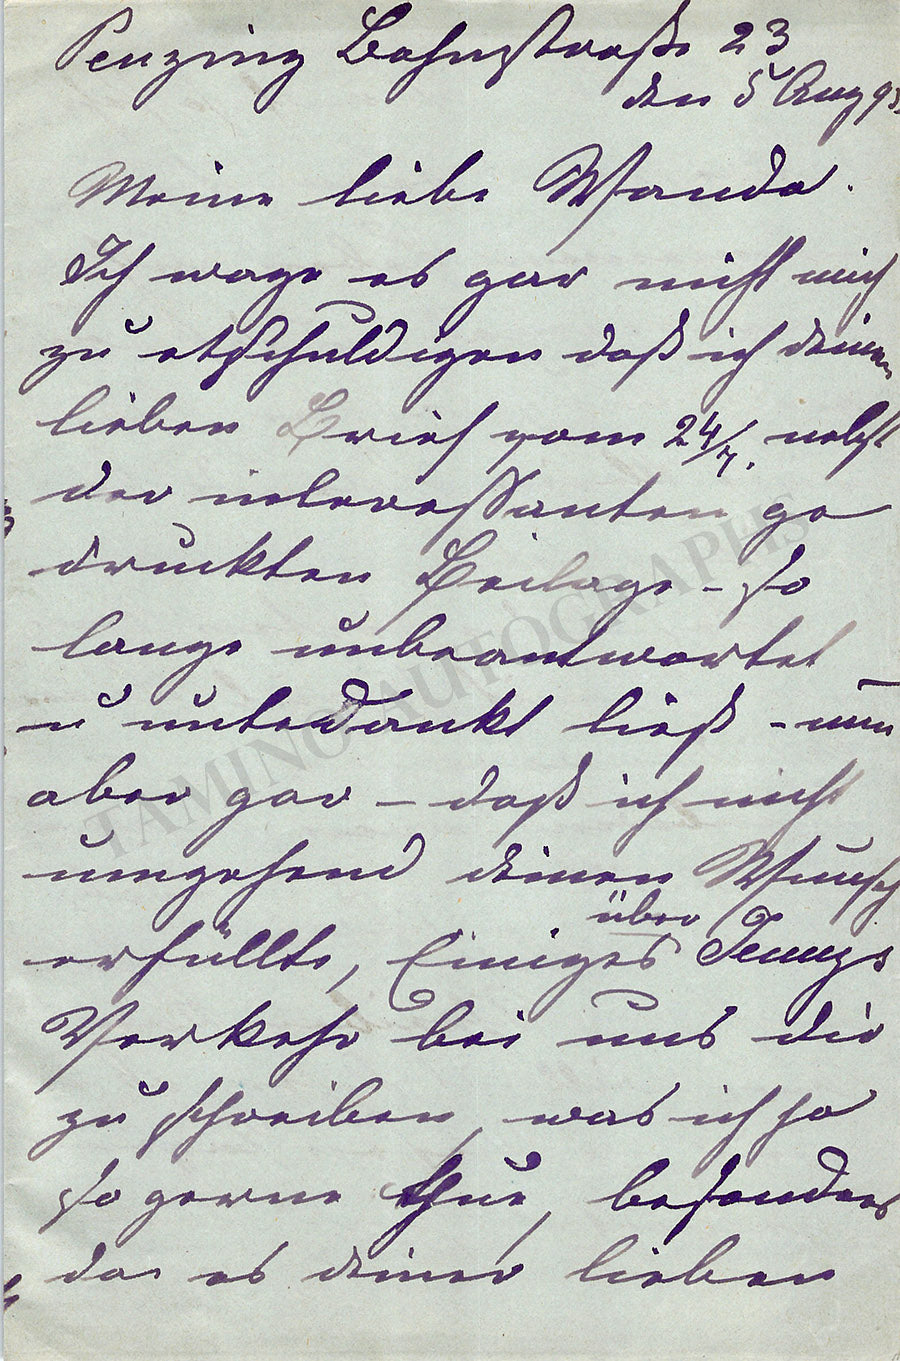 Penzing Bahnstraße 23
den 5 Aug 93
Meine liebe Wanda.
Ich wage es gar nicht mich
zu etschuldigen daß ich deinen
lieben Brief vom 24/7. nebst
der interessanten ge
druckten Beilage – so
lange unbeantwortet
u unbedankt ließ – nun
aber gar – daß ich nicht
umgehend deinen Wunsch
erfüllte, Einiges über Jennys
Verkehr bei uns dir
zu schreiben, was ich ja
so gerne thue, besonders
da es deiner lieben
TAMINO AUTOGRAPHS